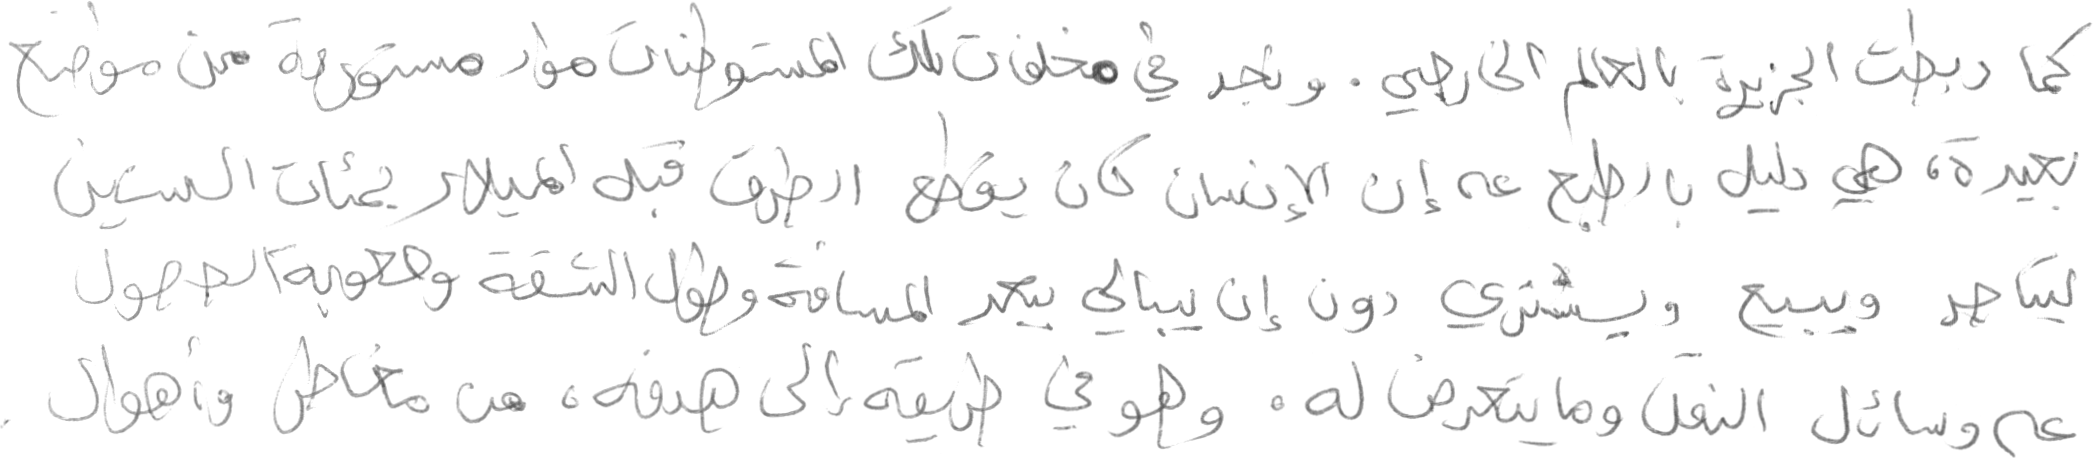 كما ربطت الجزيرة بالعالم الخارجي. ونجد في مخلفات تلك المستوطنات مواد مستوردة من مواضع
بعيدة، هي دليل بارطبع على إن الإنسان كان يقطع الطرق قبل الميلاد بمئات السنين
ليتاجر ويبيع ويشتري دون إن يبالي ببعد المسافة وطول الشقة وصعوبة الحصول
على وسائل النقل وما يتعرض له. وهو في طريقه إلى هدفه، من مخاطر وأهوال.